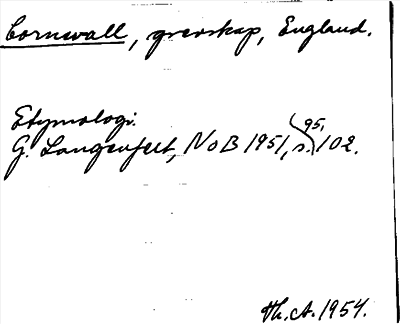 Cornwall, grevskap, England.
Etymologi.
G. Langenfelt, NoB 1951, s. 95, 102.
Th. A. 1954.